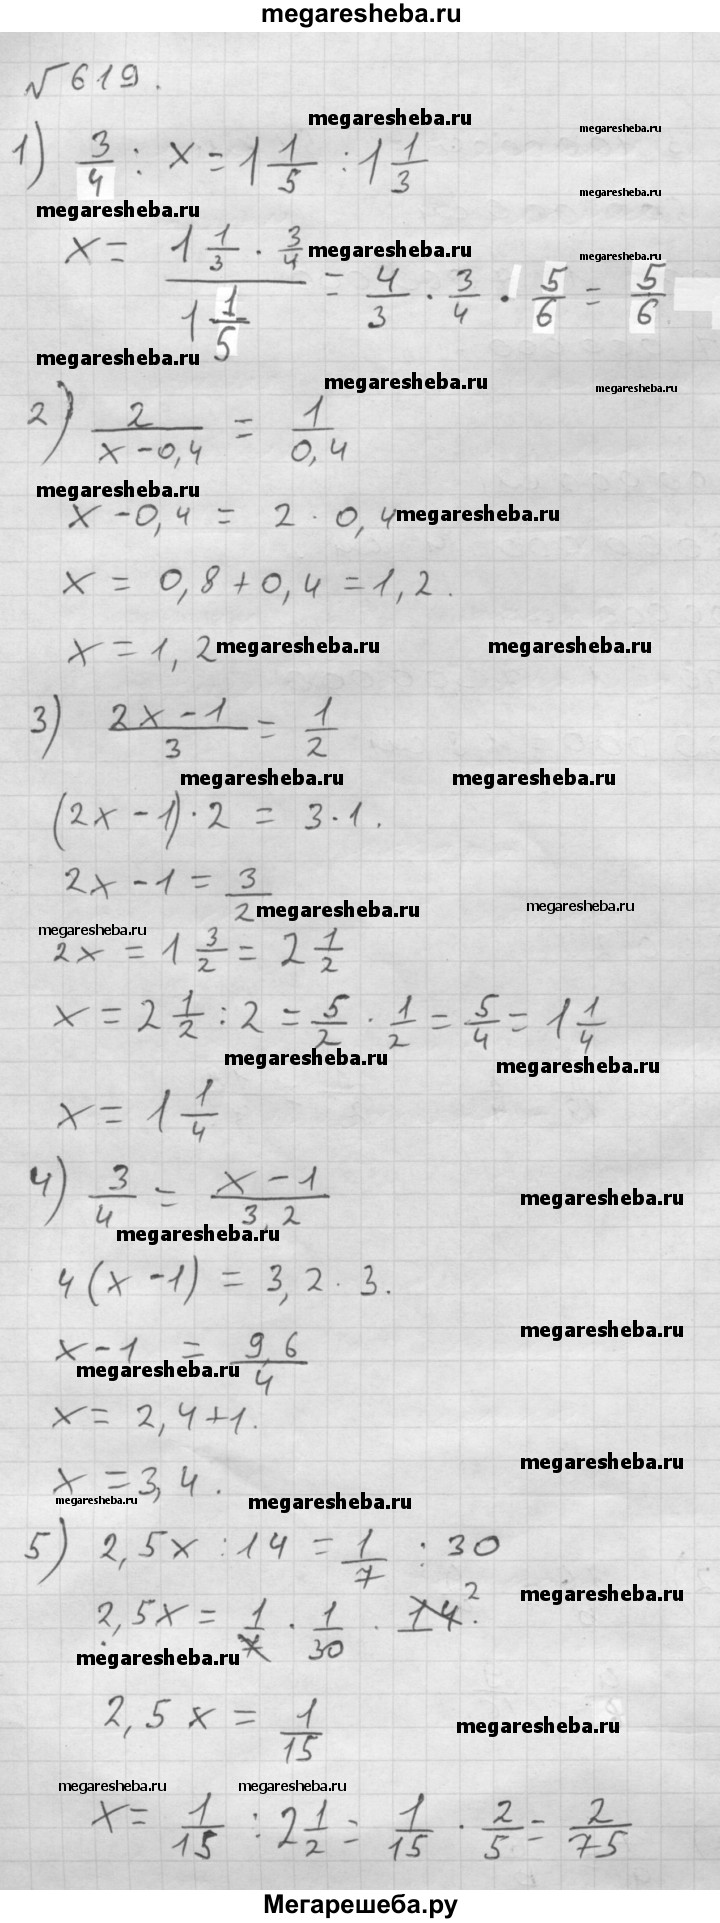 megaresheba.ru
√619.
megaresheba.ru megaresheba.ru
1) 3/4 : x = 1 1/5 : 1 1/3
megaresheba.ru megaresheba.ru
x = (1 1/3 · 3/4)/(1 1/5) = 4/3 · 3/4 · 5/6 = 5/6
megaresheba.ru megaresheba.ru
megaresheba.ru
megaresheba.ru megaresheba.ru
2) 2/(x-0,4) = 1/0,4
megaresheba.ru
x-0,4 = 2 · 0,4 megaresheba.ru
x = 0,8+0,4 = 1,2.
x = 1,2 megaresheba.ru megaresheba.ru
3) (2x-1)/3 = 1/2
megaresheba.ru megaresheba.ru
(2x-1)·2 = 3·1.
2x-1 = 3/2
megaresheba.ru megaresheba.ru
megaresheba.ru
2x = 1 3/2 = 2 1/2
x = 2 1/2 : 2 = 5/2 · 1/2 = 5/4 = 1 1/4
megaresheba.ru megaresheba.ru
x = 1 1/4
4) 3/4 = (x-1)/3,2
megaresheba.ru
megaresheba.ru
4(x-1) = 3,2 · 3.
megaresheba.ru
x-1 = 9,6/4
megaresheba.ru
x = 2,4+1.
megaresheba.ru
x = 3,4.
megaresheba.ru megaresheba.ru
5) 2,5x : 14 = 1/7 : 30
megaresheba.ru
2,5x = 1/7 · 1/30 · 14 2.
megaresheba.ru
2,5x = 1/15
megaresheba.ru
megaresheba.ru megaresheba.ru
x = 1/15 : 2 1/2 = 1/15 · 2/5 = 2/75
Мегарешеба.ру